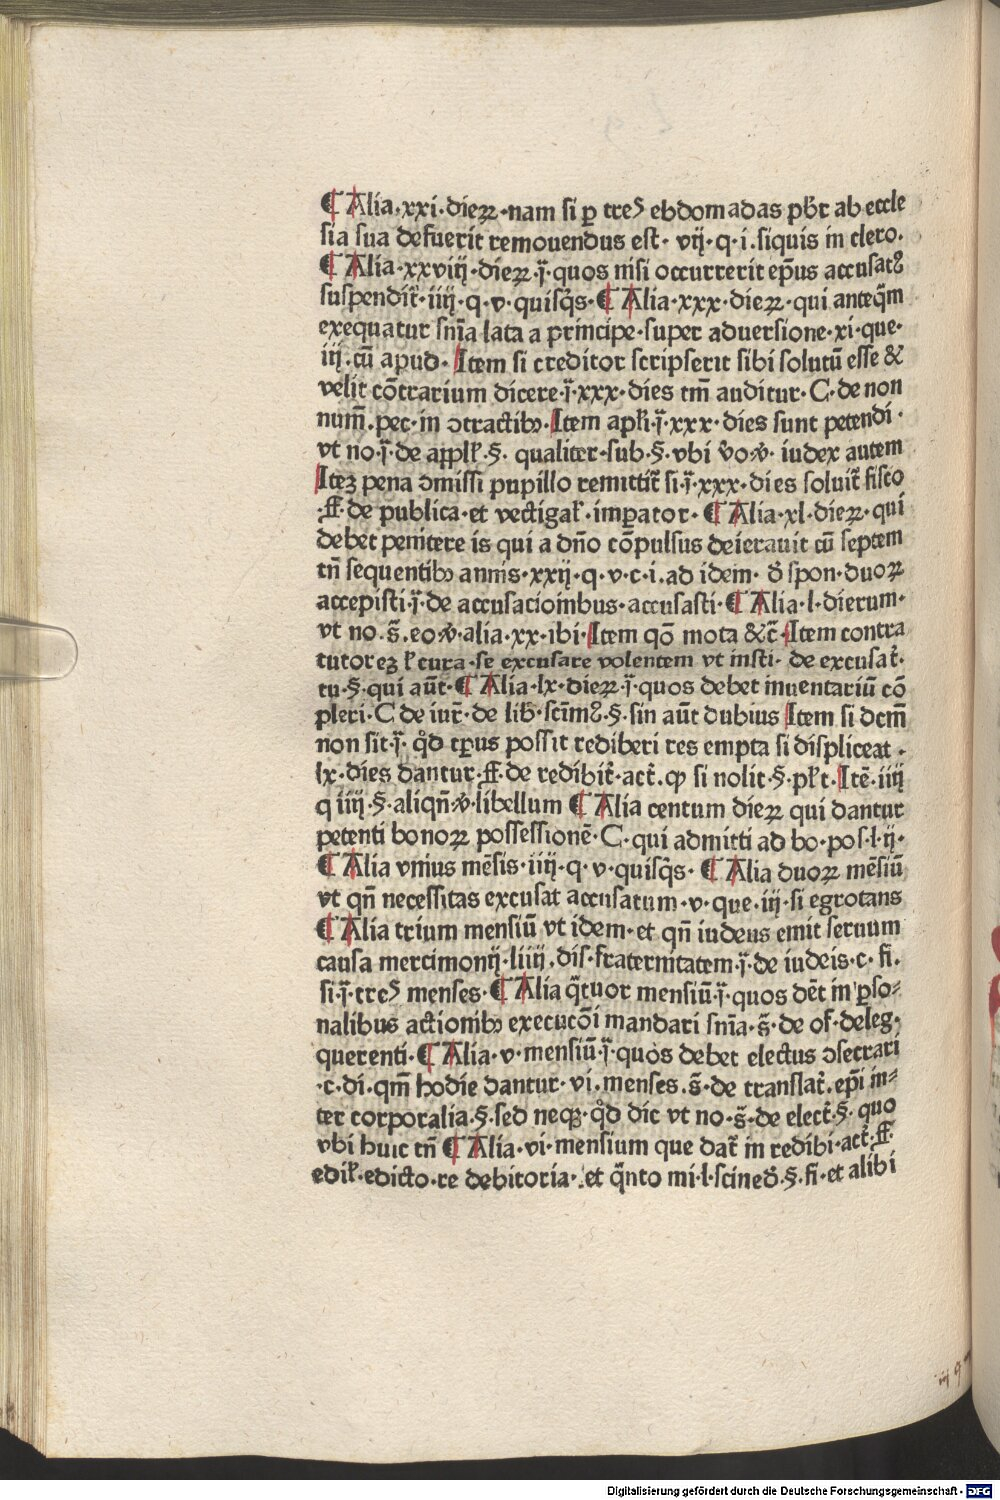 ¶ Alia·xxi·dieꝝ·nam si ꝑ tres ebdomadas pbr̄ ab eccle
sia sua defuerit remouendus est· vij·q·i·siquis in clero·
¶ Alia·xxviij·dieꝝ·ī·quos nisi occurrerit ep̄us accusatꝰ
suspendit᷑·iiij·q·v·quisq̄s·¶ Alia·xxx·dieꝝ·qui anteq̄m
exequatur sn̄ia lata a principe·super aduersione·xi·que·
iij·cū apud·Item si creditor scripserit sibi solutū esse &
velit cōtrarium dicere·ī·xxx·dies tm̄ auditur·C·de non
num̄·pec·in ꝯtractibꝫ·Item apłi·ī·xxx·dies sunt petendi·
vt no·ī·de appłł·§·qualiter·sub·§·vbi v̄o·ꝟ·iudex autem
Iteꝫ pena ꝯmissi pupillo remittit᷑ si·ī·xxx·dies soluit᷑ fisco
·ff·de publica·et vectigał·imꝑator·¶ Alia·xl·dieꝝ·qui
debet penitere is qui a dn̄o cōpulsus deierauit cū septem
tn̄ sequentibꝫ annis·xxij·q·v·c·i·ad idem·d̄ spon·duoꝝ
accepisti·ī·de accusacionibus·accusasti·¶ Alia·l·dierum·
vt no·s̄·eo·ꝟ·alia·xx·ibi·Item qō mota &c̄·Item contra
tutoreꝫ ł cura·se excusare volentem vt insti·de excusat᷑·
tu·§·qui aūt·¶ Alia·lx·dieꝝ·ī·quos debet inuentariū cō
pleri·C de iur᷑·de lib̄·scīmꝰ·§·sin aūt dubius Item si dcm̄
non sit·ī·qd̄ tꝑus possit rediberi res empta si displiceat·
lx·dies dantur·ff·de redibit᷑·act᷑·ꝙ si nolit·§·płt·Itē·iiij
q iiij·§·aliqn̄·ꝟ·libellum ¶ Alia centum dieꝝ qui dantur
petenti bonoꝝ possessionē·C·qui admitti ad bo·pos·l·ij·
¶ Alia vnius mēsis·iiij·q·v·quisq̄s·¶ Alia duoꝝ mēsiū
vt qn̄ necessitas excusat accusatum·v·que·iij·si egrotans
¶ Alia trium mensiū vt idem·et qn̄ iudeus emit seruum
causa mercimonij·liiij·dis·fraternitatem·ī·de iudeis·c·fi·
si·ī·tres menses·¶ Alia q̄tuor mensiū·ī·quos dēt in ꝑso⸗
nalibus actionibꝫ execucōi mandari sn̄ia·s̄·de of·deleg·
querenti·¶ Alia·v·mensiū·ī·quos debet electus ꝯsecrari
·c·di·qm̄ hodie dantur·vi·menses·s̄·de translat᷑·ep̄i in⸗
ter corporalia·§·sed neqꝫ·qd̄ dic vt no·s̄·de elect᷑·§·quo
vbi huic tn̄ ¶ Alia·vi·mensium que dat᷑ in redibi·act᷑·ff·
edił·edicto·re debitoria·et q̄nto mi·l·sciend̄·§·fi·et alibi
Digitalisierung gefördert durch die Deutsche Forschungsgemeinschaft - DFG